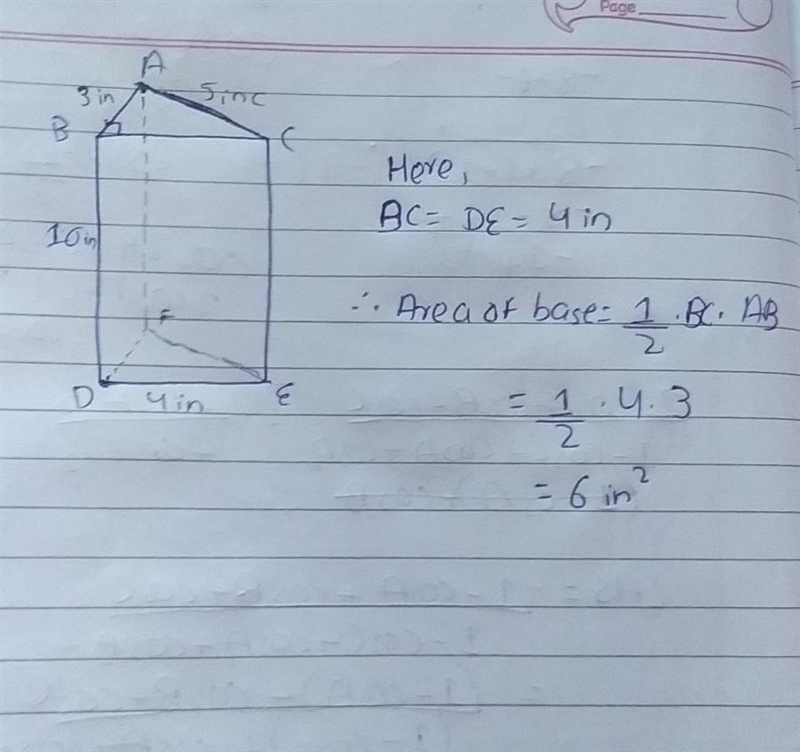 Page
A
3 in
5 inc
B
C
Here,
AC = DE = 4 in
10 in
∴ Area of base = 1/2 . BC . AB
F
D
4 in
E
= 1/2 . 4 . 3
= 6 in²